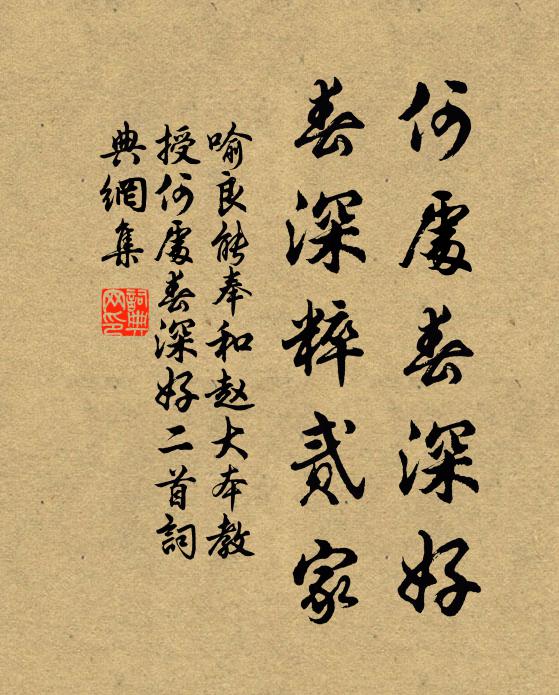 何處春深好
春深粹貳家
喻良能奉和赵大本教
授何處春深好二首詞
典網集
詞典
网印